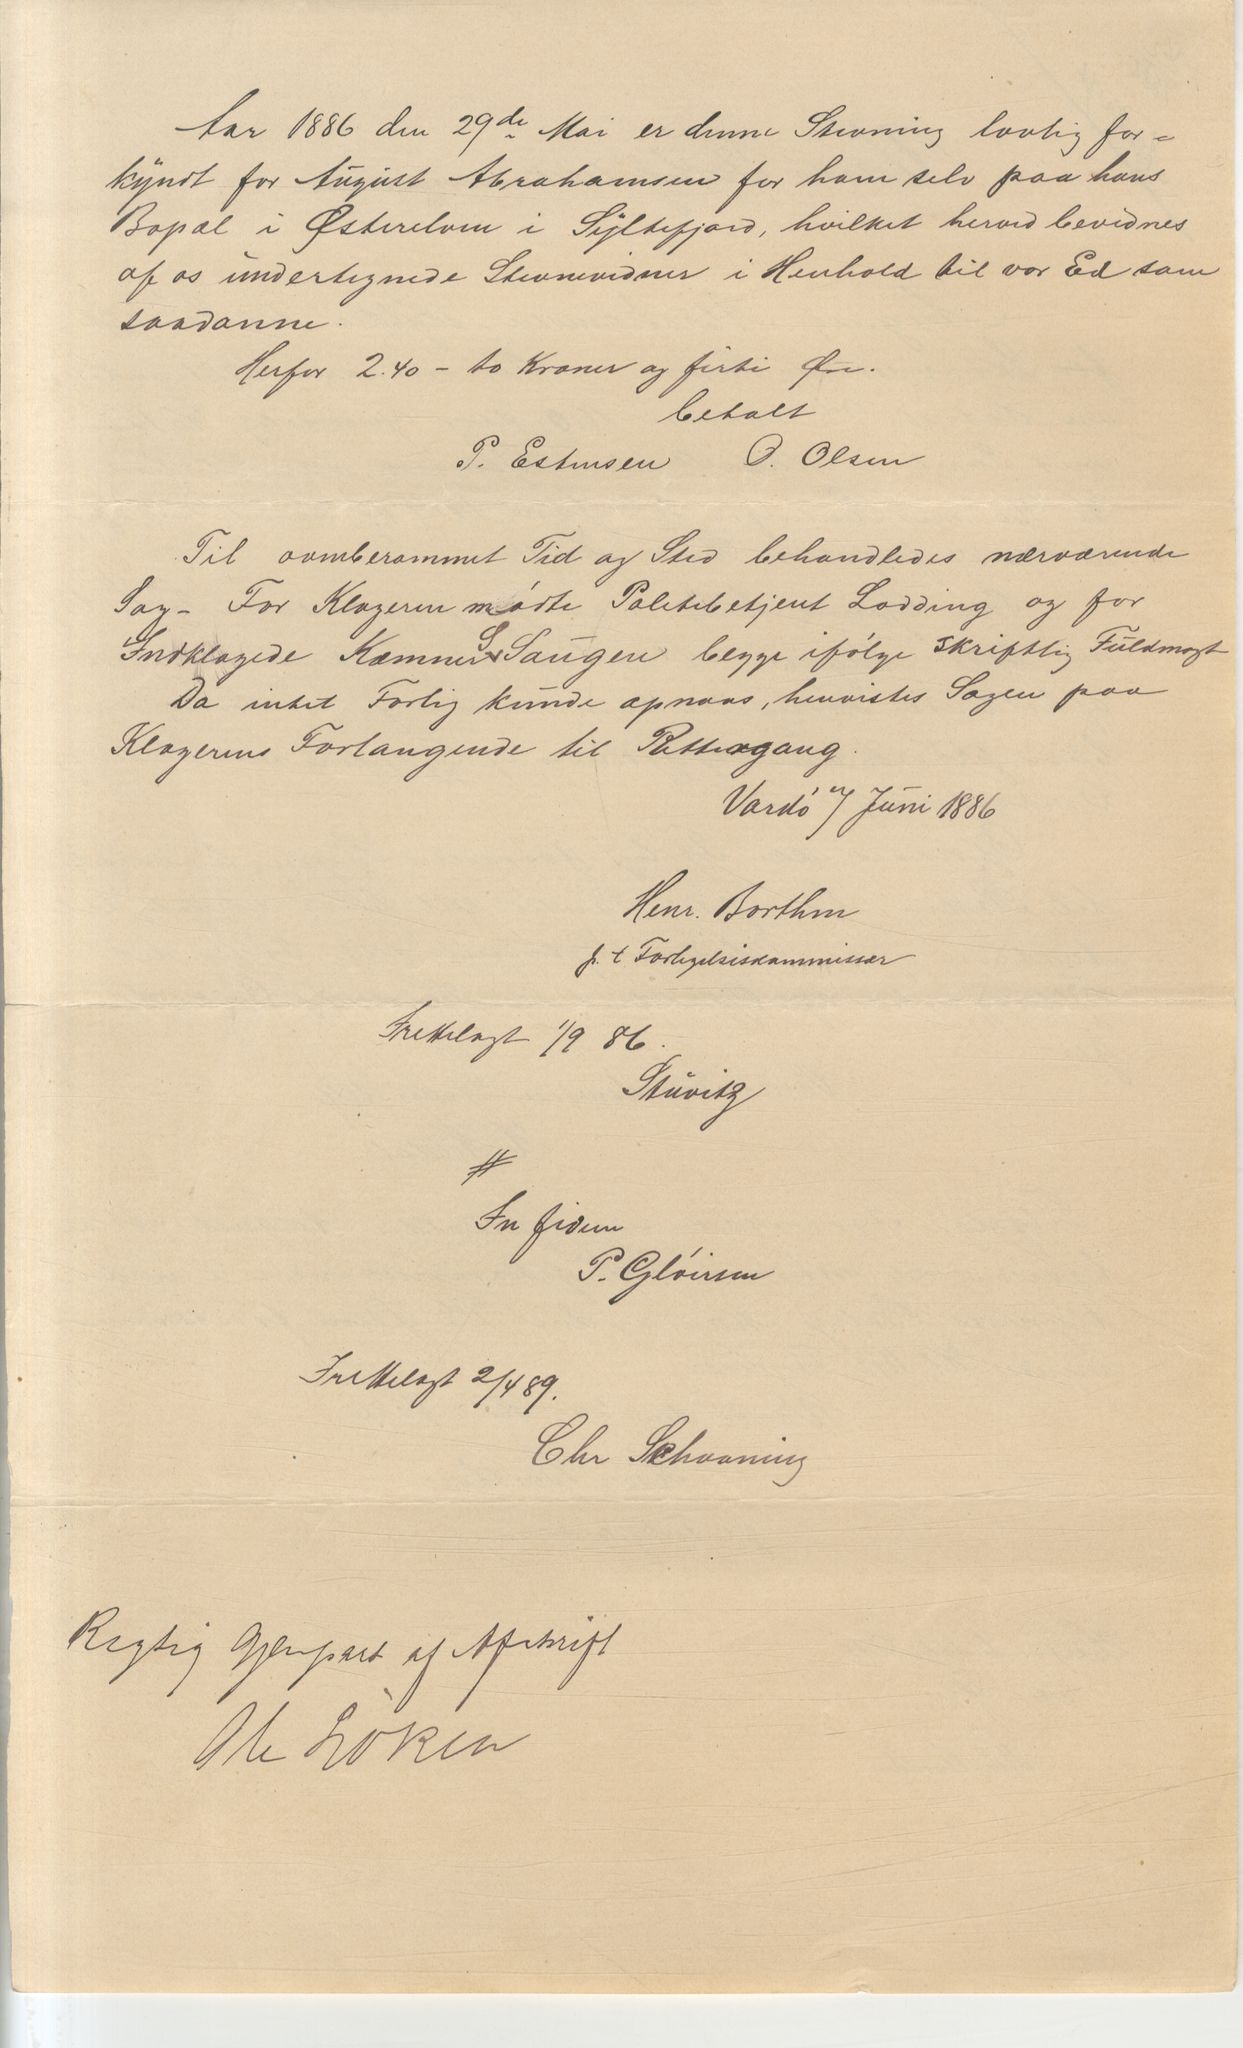 Aar 1886 den 29de Mai er denne Stevning lovlig for-
kyndt for August Abrahamsen for ham selv paa hans
Bopæl i Østerelven i Syltefjord, hvilket herved bevidnes
af os undertegnede Stevnevidner i Henhold til vor Ed som
saadanne.
Herfor 2.40 - to Kroner og firti Øre.
betalt
P. Estensen O. Olsen
Til ovenberammet Tid og Sted behandledes nærværende
Sag - For Klageren mødte Politibetjent Lodding og for
Indklagede Kæmner S Saugen begge ifølge skriftlig Fuldmagt
Da intet Forlig kunde opnaaes, henvistes Sagen paa
Klagerens Forlangende til Rettergang.
Vardø Juni 1886
Henr. Borthen
p. t Forligelseskommissær
Fremlagt 1/9 86.
Stuvitz
#
In fidem
P. Gløersen
Fremlagt 2/4 89.
Chr Schaaning
Rigtig Gjenpart af Afskrift
Ole Løken